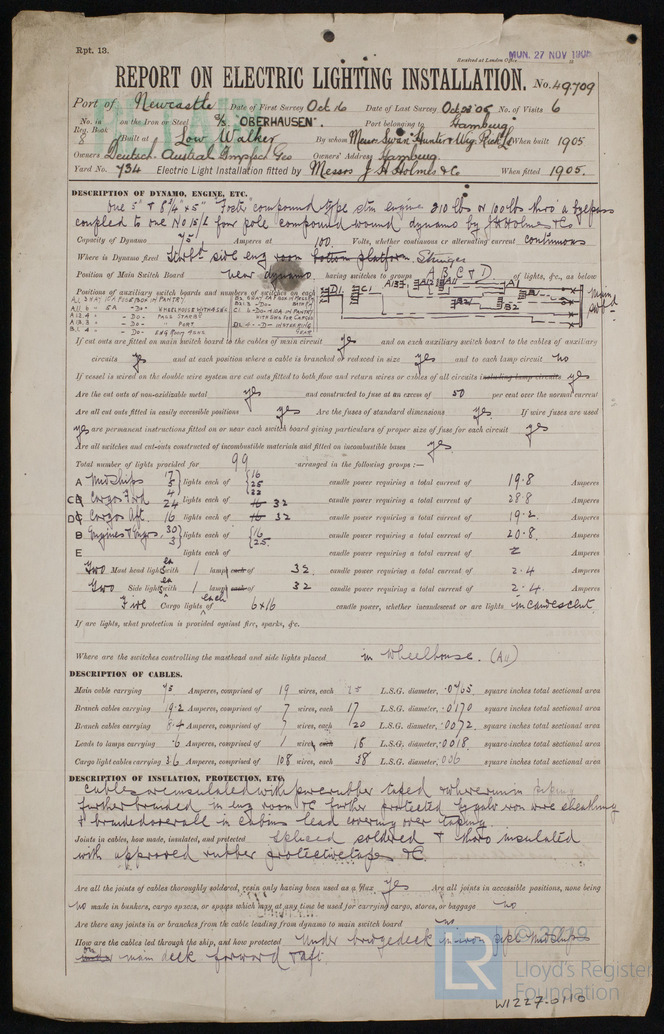 Rpt. 13.
Received at London Office MON. 27 NOV 1905
REPORT ON ELECTRIC LIGHTING INSTALLATION. No. 49709
Port of Newcastle Date of First Survey Oct 16 Date of Last Survey Oct 28 05 No. of Visits 6
No. in Reg. Book 8 on the Iron or Steel S/S "OBERHAUSEN". Port belonging to Hamburg
Built at Low Walker By whom Messrs Swan Hunter & Wig. Rich. Ld When built 1905
Owners Deutsch Austral Dampsch Ges Owners' Address Hamburg
Yard No. 734 Electric Light Installation fitted by Messrs J H Holmes & Co When fitted 1905.
DESCRIPTION OF DYNAMO, ENGINE, ETC.
One 5" & 8 3/4" x 5" compound type stm engine 210 lbs or 100 lbs thro' a bypass
coupled to one No 15/L four pole compound wound dynamo by J H Holmes & Co
Capacity of Dynamo 75 Amperes at 100 Volts, whether continuous or alternating current continuous
Where is Dynamo fixed side eng room bottom platform.
Position of Main Switch Board near dynamo. having switches to groups A B C & D of lights, &c., as below
Positions of auxiliary switch boards and numbers of switches on each
If cut outs are fitted on main switch board to the cables of main circuit yes and on each auxiliary switch board to the cables of auxiliary
circuits yes and at each position where a cable is branched or reduced in size yes and to each lamp circuit no
If vessel is wired on the double wire system are cut outs fitted to both flow and return wires or cables of all circuits including lamp circuits yes
Are the cut outs of non-oxidizable metal yes and constructed to fuse at an excess of 50 per cent over the normal current
Are all cut outs fitted in easily accessible positions yes Are the fuses of standard dimensions yes. If wire fuses are used
yes are permanent instructions fitted on or near each switch board giving particulars of proper size of fuse for each circuit yes
Are all switches and cut-outs constructed of incombustible materials and fitted on incombustible bases yes
Total number of lights provided for 99 arranged in the following groups :—
A Midships 17 5 4 lights each of 16 25 32 candle power requiring a total current of 19.8 Amperes
C Cargo Ford 24 lights each of 16 32 candle power requiring a total current of 28.8 Amperes
D Cargo Aft. 16 lights each of 16 32 candle power requiring a total current of 19.2 Amperes
B Engines & Engrs. 30 3 lights each of 16 25 candle power requiring a total current of 20.8 Amperes
E lights each of candle power requiring a total current of Amperes
Two Mast head light with 1 lamp each of 32 candle power requiring a total current of 2.4 Amperes
Two Side light with 1 lamp each of 32 candle power requiring a total current of 2.4 Amperes
Five Cargo lights of each 6 x 16 candle power, whether incandescent or arc lights incandescent.
If arc lights, what protection is provided against fire, sparks, &c.
Where are the switches controlling the masthead and side lights placed in wheelhouse. (A11)
DESCRIPTION OF CABLES.
Main cable carrying 75 Amperes, comprised of 19 wires, each 15 L.S.G. diameter, .0765 square inches total sectional area
Branch cables carrying 19.2 Amperes, comprised of 7 wires, each 17 L.S.G. diameter, .0170 square inches total sectional area
Branch cables carrying 8.4 Amperes, comprised of 7 wires, each 20 L.S.G. diameter, .0072 square inches total sectional area
Leads to lamps carrying .6 Amperes, comprised of 1 wires, each 18 L.S.G. diameter, .0018 square inches total sectional area
Cargo light cables carrying 3.6 Amperes, comprised of 108 wires, each 38 L.S.G. diameter, .006 square inches total sectional area
DESCRIPTION OF INSULATION, PROTECTION, ETC.
Cables are insulated with pure rubber taped & whereunin
further braided in eng room &c further protected by galv iron wire sheathing
& braided overall in cabins lead covering over taping.
Joints in cables, how made, insulated, and protected spliced soldered & thoro insulated
with approved rubber protective tapes &c.
Are all the joints of cables thoroughly soldered, resin only having been used as a flux yes Are all joints in accessible positions, none being
no made in bunkers, cargo spaces, or spaces which may at any time be used for carrying cargo, stores, or baggage no
Are there any joints in or branches from the cable leading from dynamo to main switch board no
How are the cables led through the ship, and how protected Under bridge deck in iron pipe midships
on main deck forward & aft.
LR
© 2019
Lloyd's Register
Foundation
W1227-0110